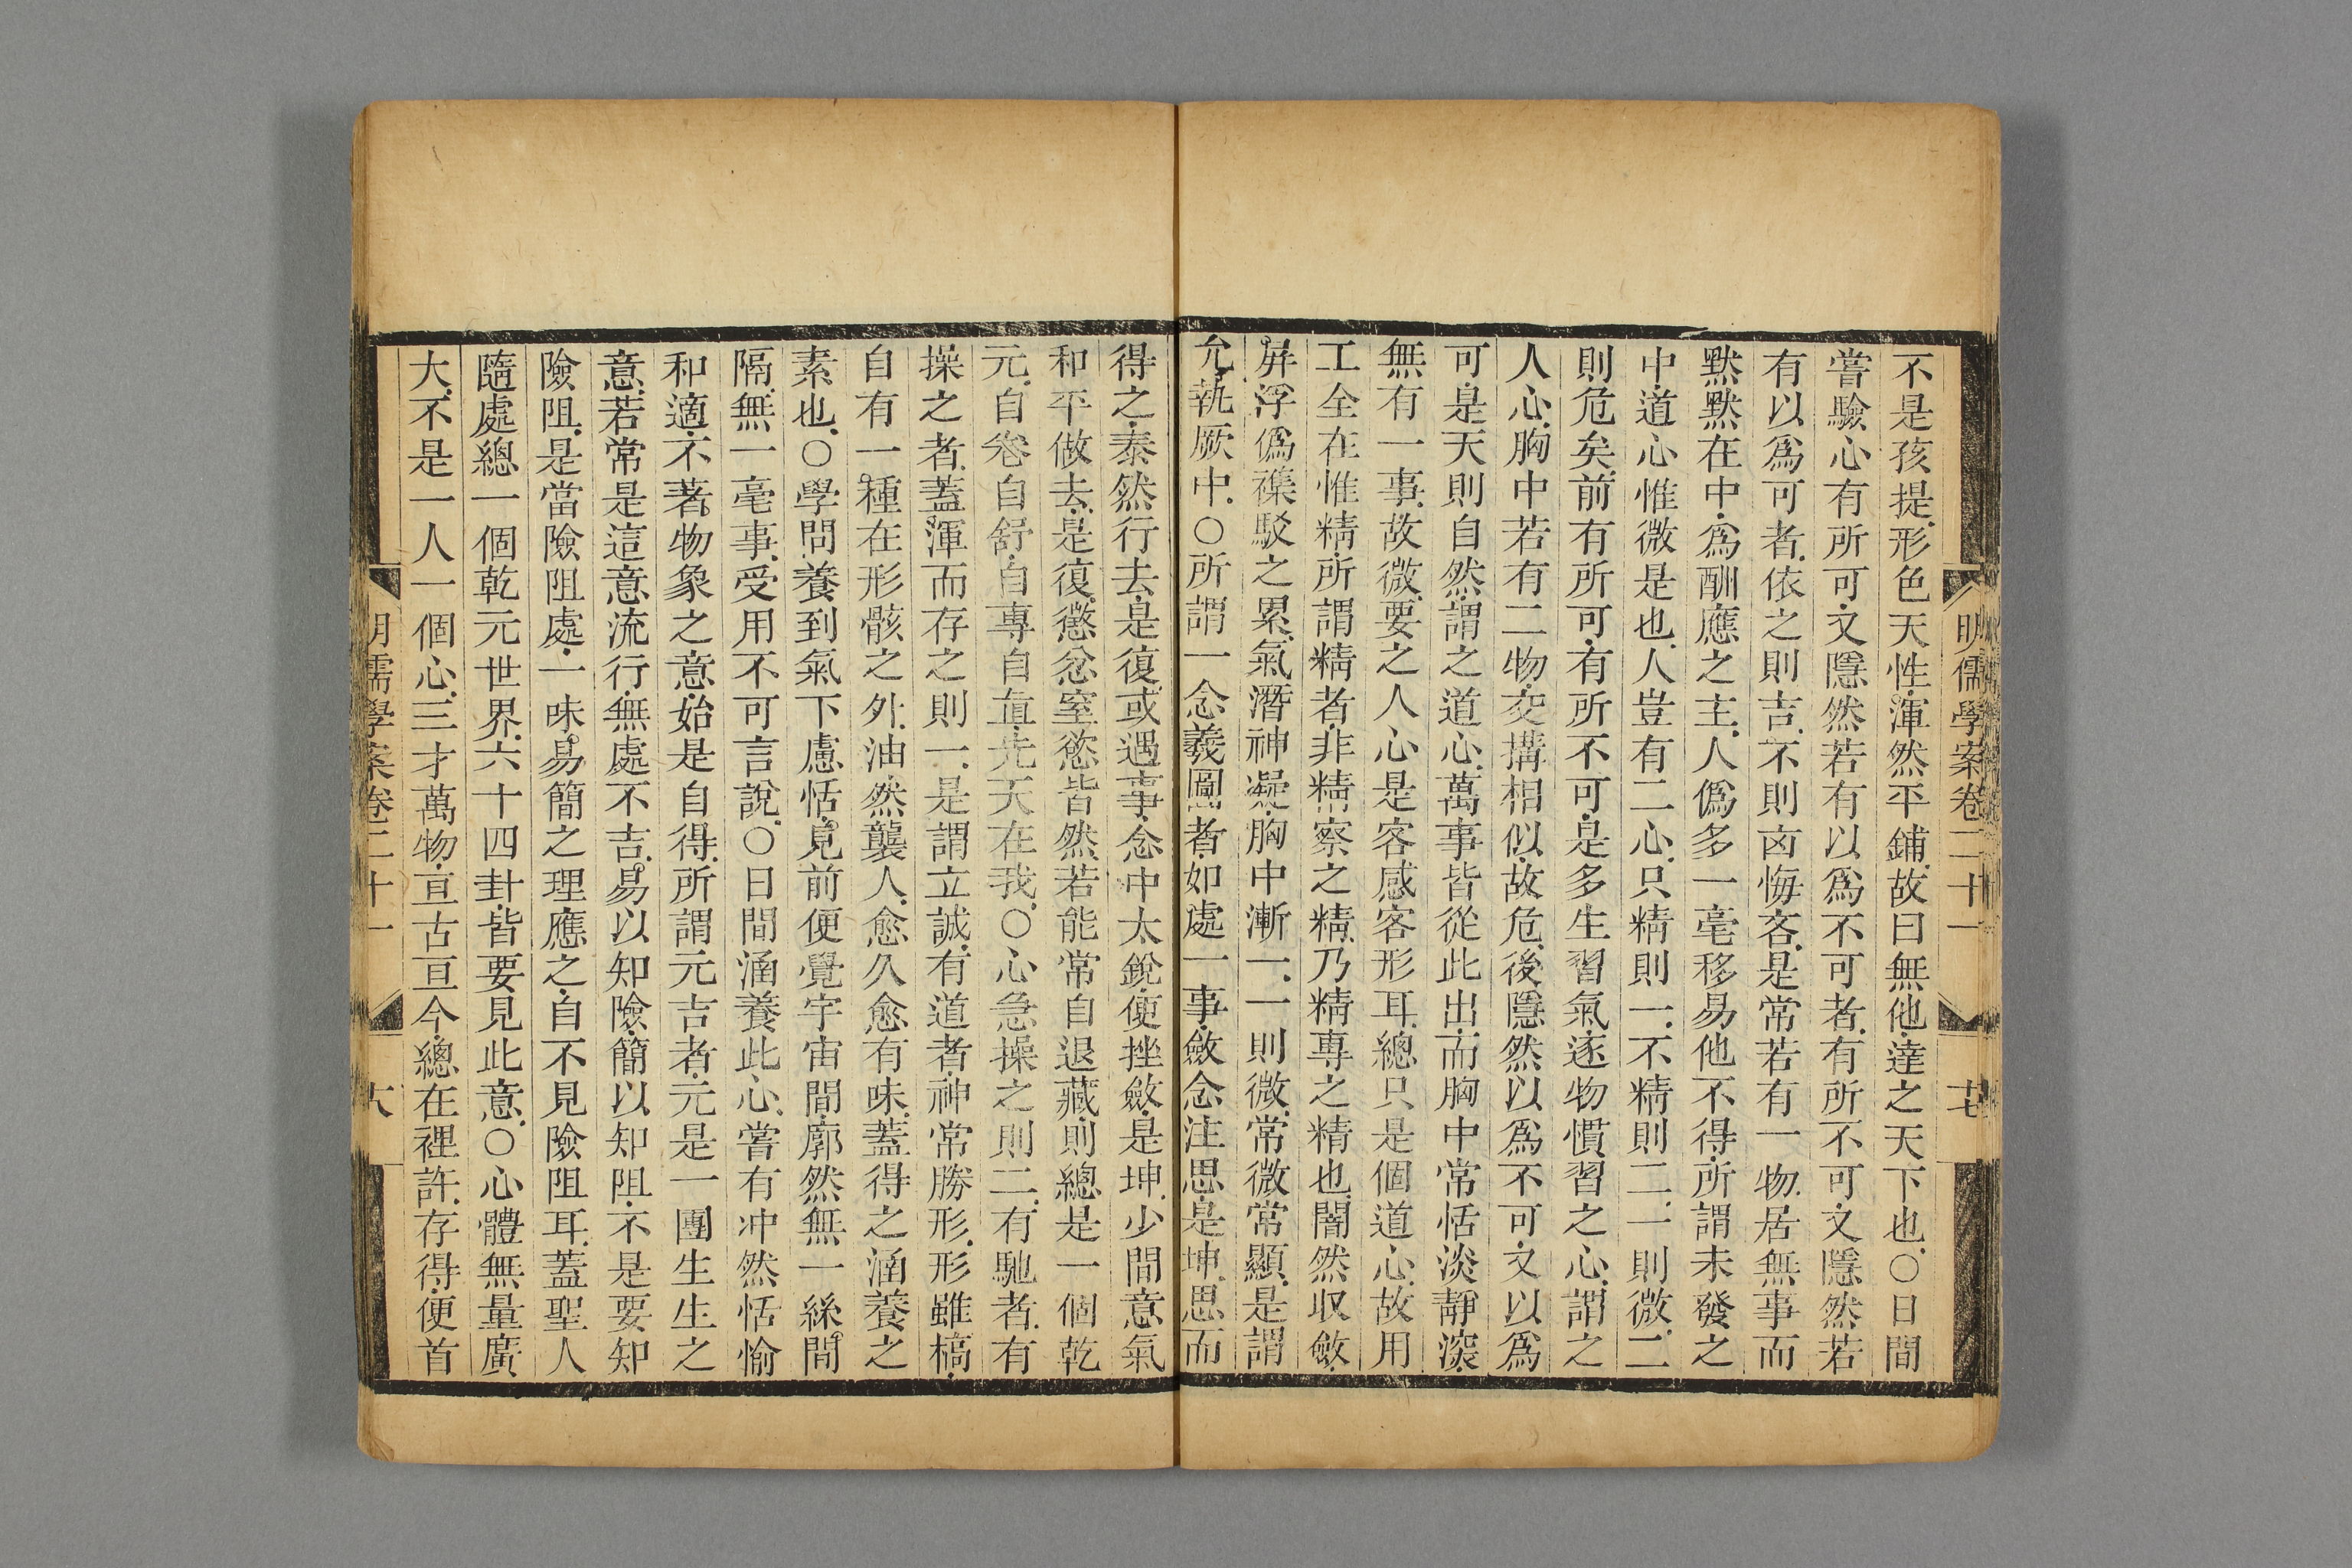 明儒學案卷二十一
十七
不是孩提.形色天性.渾然平鋪.故曰無他.達之天下也.○日間
嘗驗心有所可.又隱然若有以爲不可者.有所不可.又隱然若
有以爲可者.依之則吉.不則凶悔吝.是常若有一物.居無事而
默默在中.爲酬應之主.人僞多一毫移易他不得.所謂未發之
中.道心惟微是也.人豈有二心.只精則一.不精則二.一則微.二
則危矣.前有所可.有所不可.是多生習氣逐物慣習之心.謂之
人心.胸中若有二物.交搆相似.故危.後隱然以爲不可.又以爲
可.是天則自然.謂之道心.萬事皆從此出.而胸中常恬淡靜深.
無有一事.故微.要之人心是客感客形耳.總只是個道心.故用
工全在惟精.所謂精者.非精察之精.乃精專之精也.闇然收斂.
屏浮僞襍駁之累.氣潛神凝.胸中漸一.一則微.常微常顯.是謂
允執厥中.○所謂一念羲圖者.如處一事.斂念注思.是坤.思而
得之.泰然行去.是復.或遇事.念中太銳.便挫斂.是坤.少間意氣
和平做去.是復.懲忿窒慾皆然.若能常自退藏.則總是一個乾
元.自卷自舒.自專自直.先天在我.○心急操之則二.有馳者.有
操之者.蓋渾而存之則一.是謂立誠.有道者.神常勝形.形雖槁.
自有一種在形骸之外.油然襲人.愈久愈有味.蓋得之涵養之
素也.○學問養到氣下慮恬.見前便覺宇宙間.廓然無一絲間
隔.無一毫事.受用不可言說.○日間涵養此心.嘗有冲然恬愉
和適.不著物象之意.始是自得.所謂元吉者.元是一團生生之
意.若常是這意流行.無處不吉.易以知險.簡以知阻.不是要知
險阻.是當險阻處.一味易簡之理應之.自不見險阻耳.蓋聖人
隨處總一個乾元世界.六十四卦.皆要見此意.○心體無量廣
大.不是一人一個心.三才萬物.亘古亘今.總在裡許.存得.便首
明儒學案卷二十一
大